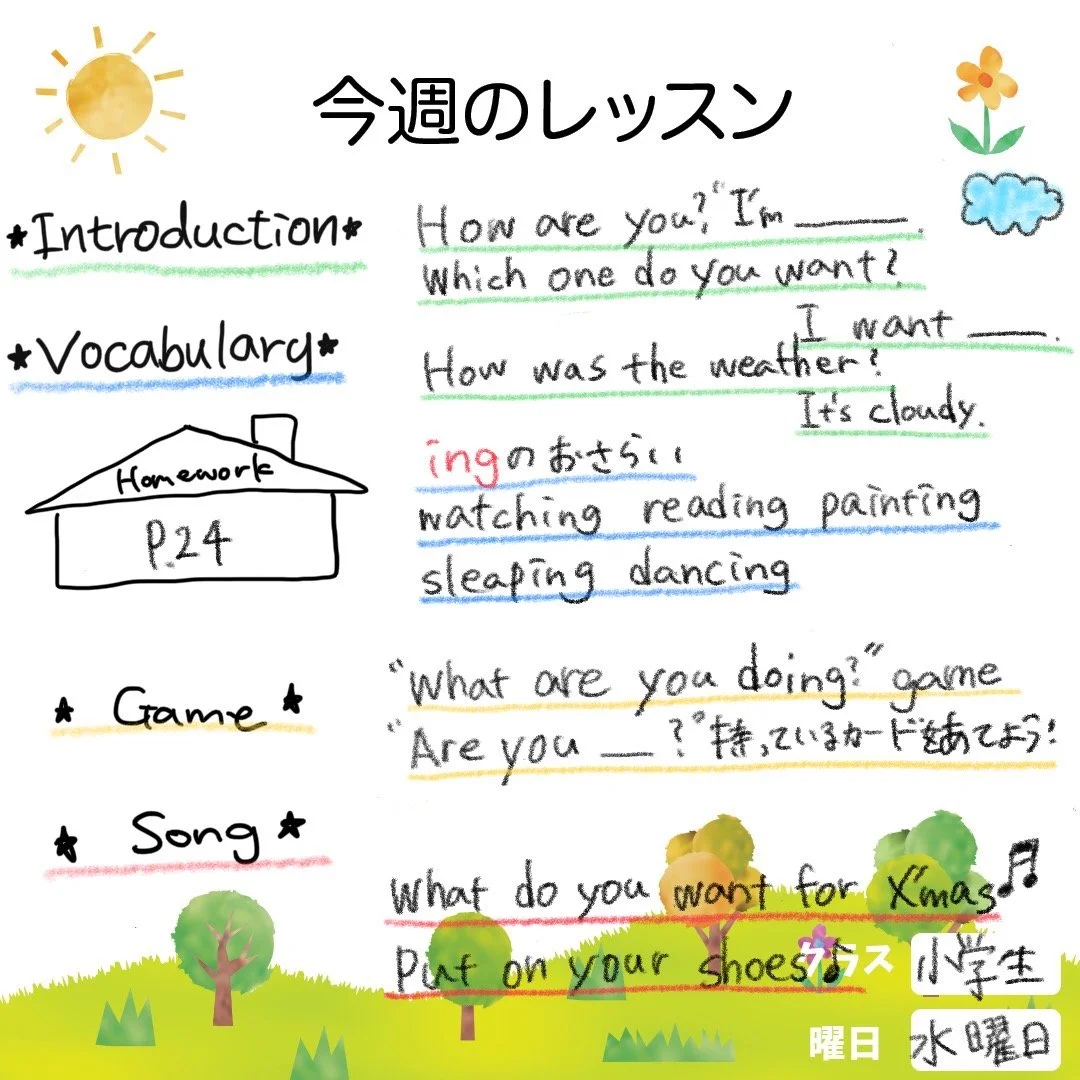 今週のレッスン
★Introduction★
How are you? "I'm ______.
Which one do you want?
I want ____.
★Vocabulary★
How was the weather?
It's cloudy.
ingのおさらい
watching reading painting
sleaping dancing
Homework
P.24
★ Game ★
"What are you doing?" game
"Are you __ ?" 持っているカードをあてよう!
★ Song ★
What do you want for X'mas♫
Put on your shoes♪
クラス 小学生
曜日 水曜日